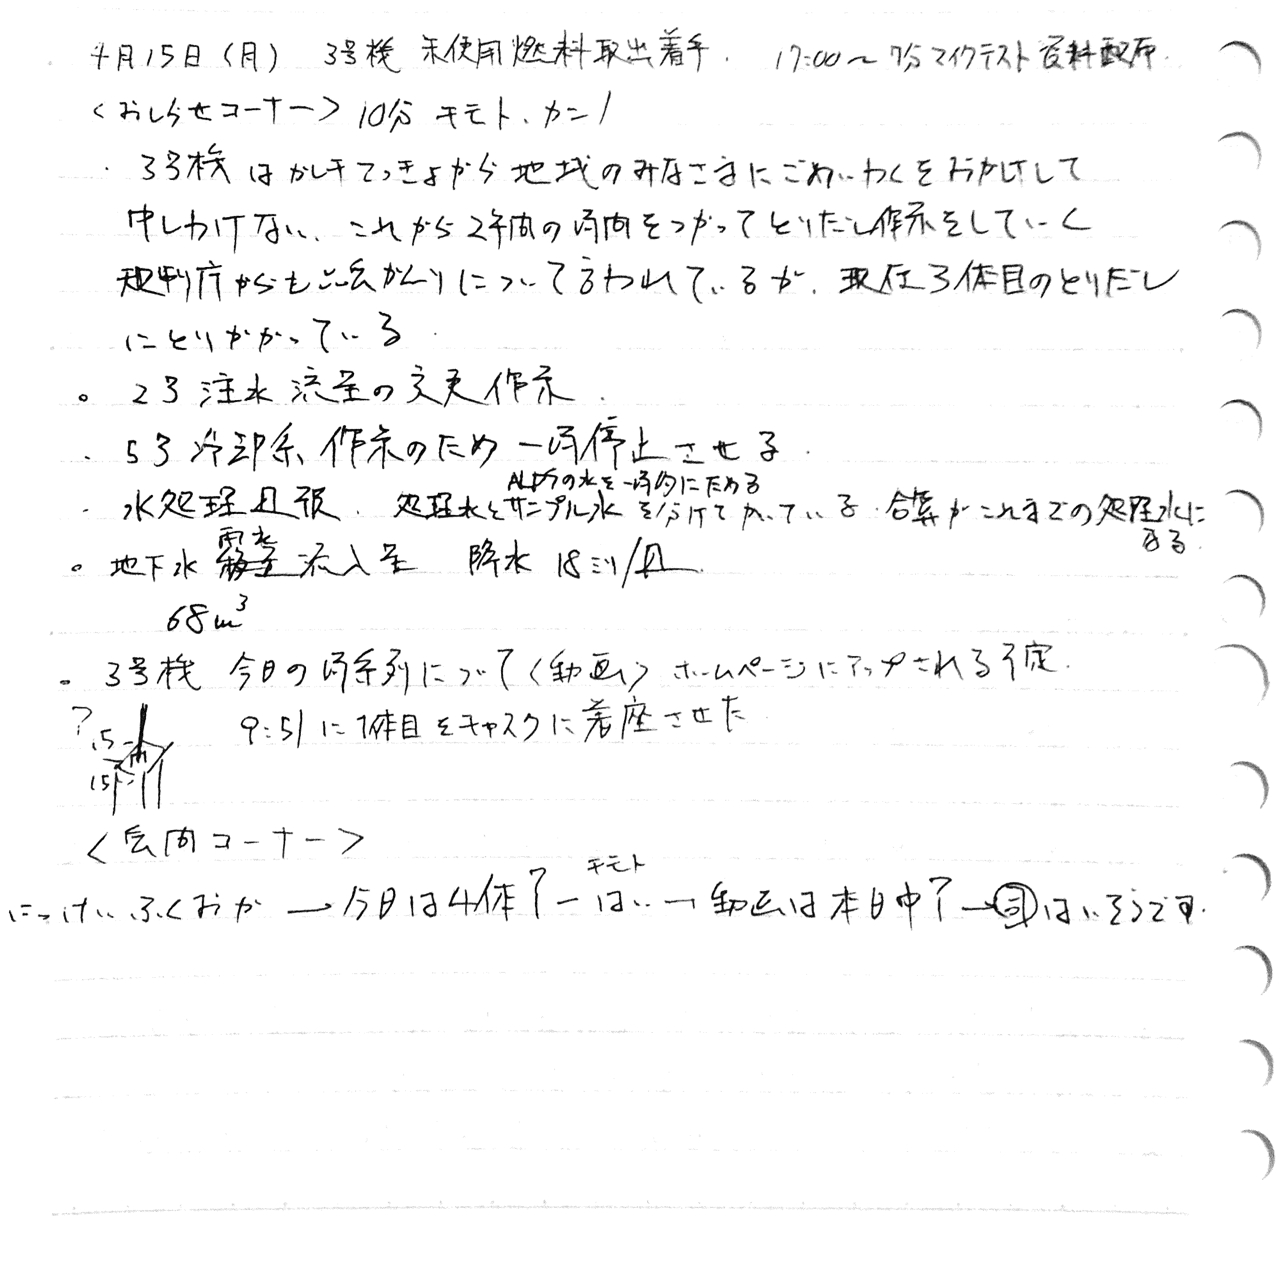 4月15日(月) 3号機 未使用燃料取出着手. 17:00〜 7分マイクテスト 資料配布.
<おしらせコーナー> 10分 キモト、カニノ
・3号機はがれきてっきょから地域のみなさまにごめいわくをおかけして
申しわけない、これから2年間の時間をつかってとりだし作業をしていく
規制庁からも品質かんりについて言われているが、現在3体目のとりだし
にとりかかっている.
。2号 注水流量の変更作業.
・5号 冷却系、作業のため 一時停止させる.
ALPSの水を一時的にためる
・水処理日報. 処理水とサンプル水を分けてかいている. 合算がこれまでの処理水に
なる.
雨水
。地下水 流入量 降水 18ミリ/日
68m³
。3号機 今日の時系列について〈動画〉ホームページにアップされる予定.
? 9:51に1体目をキャスクに着座させた
15
15トン
<質問コーナー>
キモト
にっけい ふくおか → 今日は4体? − はい → 動画は本日中? → はいそうです.